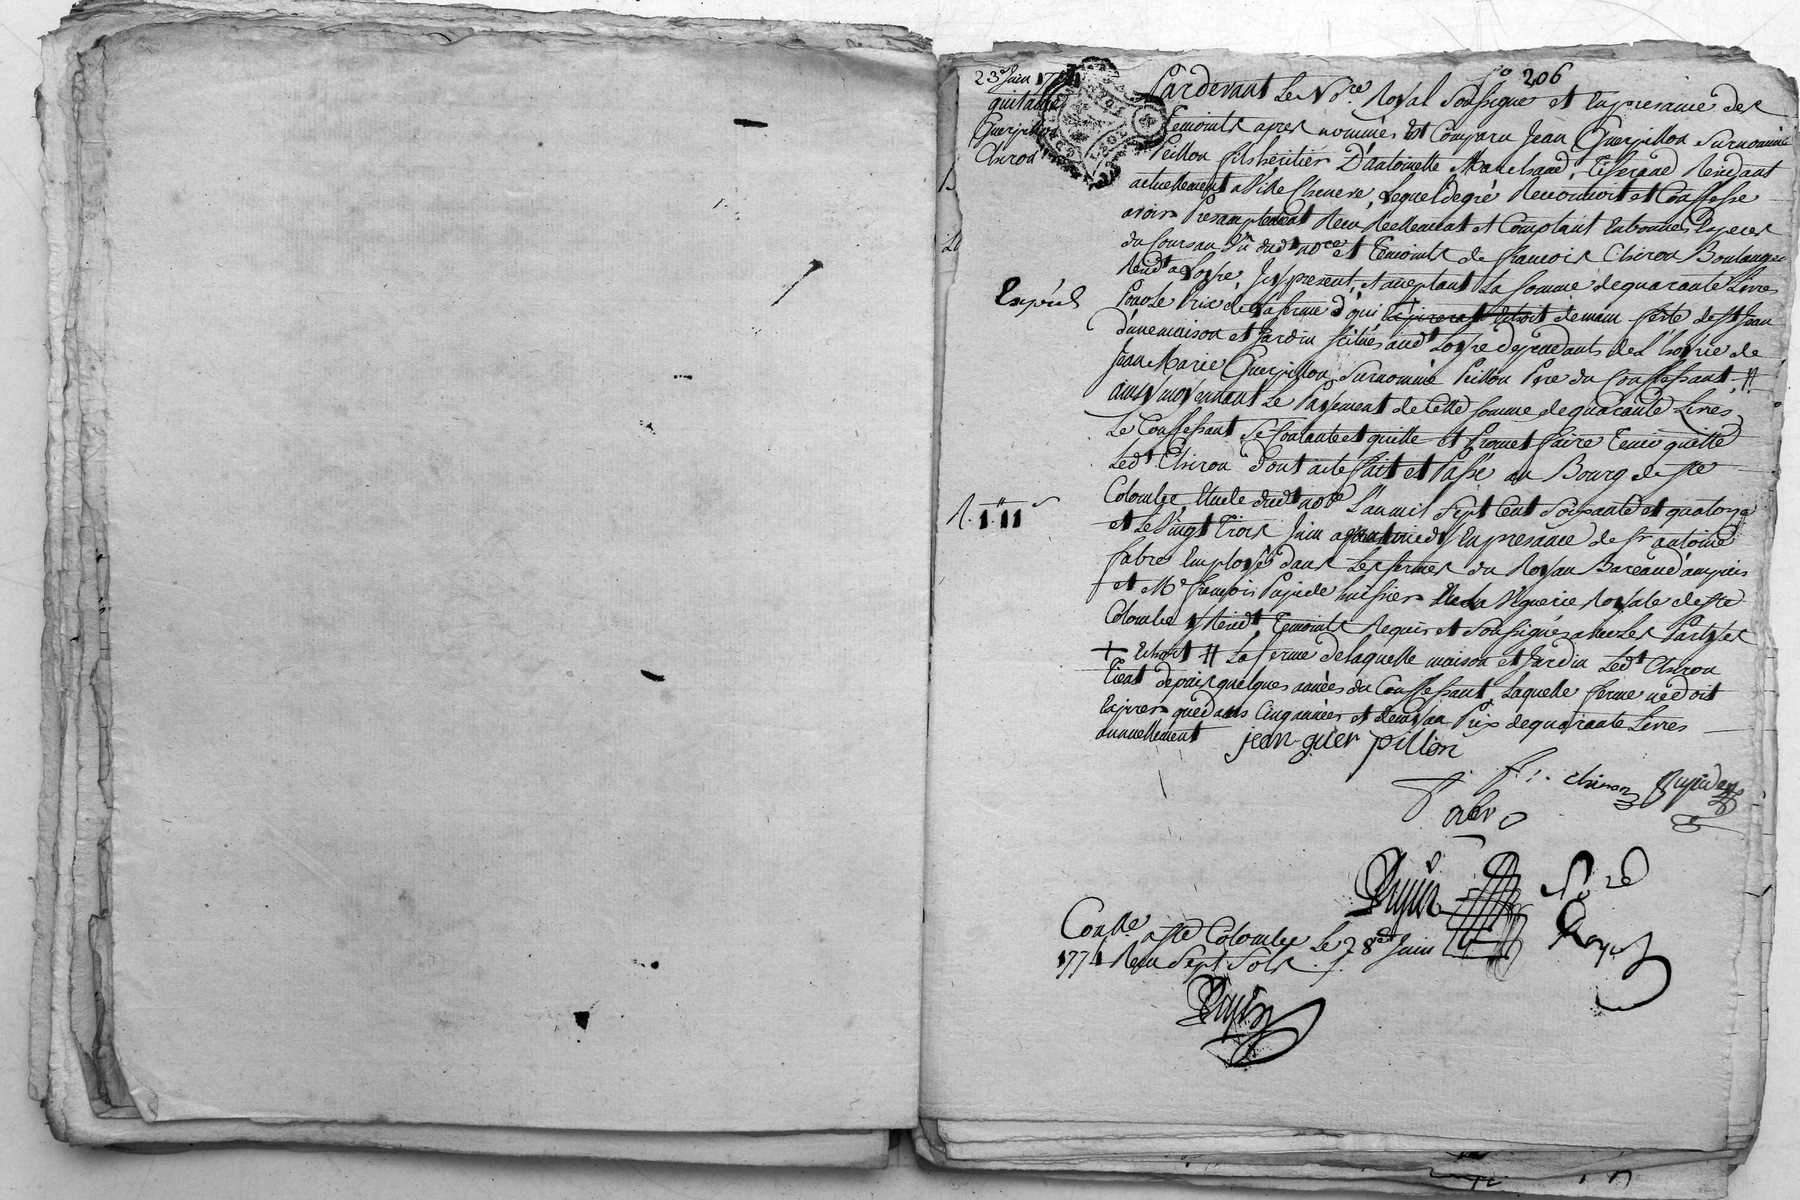 23e Juin 1774
quitance
Guerpillon
Chiron
fo 206
Pardevant Le Nore Royal Soussigné et En presance des
Temoints apres nommés Est Comparu Jean Guerpillon Surnommé
Peillon fils héritier D'antoinette Marchand, Tisserand Résidant
actuellement a Ville Cheneve, Lequel de gré Reconnoit et Confesse
avoir Presantement Recu Réellement et Comptant En bonnes Especes
du Cours au Vu dudt nore et Temoints de francois Chiron Boulanger
Residt a Losne, Icy present, et acceptant La Somme de quarante Livres
Expédié
Pour Le Prix de La ferme d'qui Echoit demain feste de St Jean
d'une maison et Jardin Scitués audt Losne dependants de L'hoirie de
Jean Marie Guerpillon Surnommé Peillon Pere du Confessant, #
ainsy moyennant Le Payement de Cette Somme de quarante Livres
Le Confessant Se Contante et quitte et Promet faire Tenir quitte
Ledt Chiron Dont acte fait et Passé au Bourg de Ste
Colombe, Etude dudt nore L'an mil Sept Cent Soixante et quatorze
et Le Vingt Trois Juin apres midy En presance de Sr antoine
fabre Employé dans Les fermes du Roy au Bureau d'ampuis
et Me francois Pupide huissier En La Viguerie Royale de Ste
Colombe y Residt Temoints Requis et Soussignés avec Les Partyes
+ Echoit # La ferme de Laquelle maison et Jardin Ledt Chiron
Tient depuis quelques années du Confessant Laquelle ferme ne doit
Expirer que dans Cinq années et demy au Prix de quarante Livres
annuellement
jean guer pillon
f. chiron
fabre
Conlle a Ste Colombe Le 28e Juin
1774 Recu Sept Sols